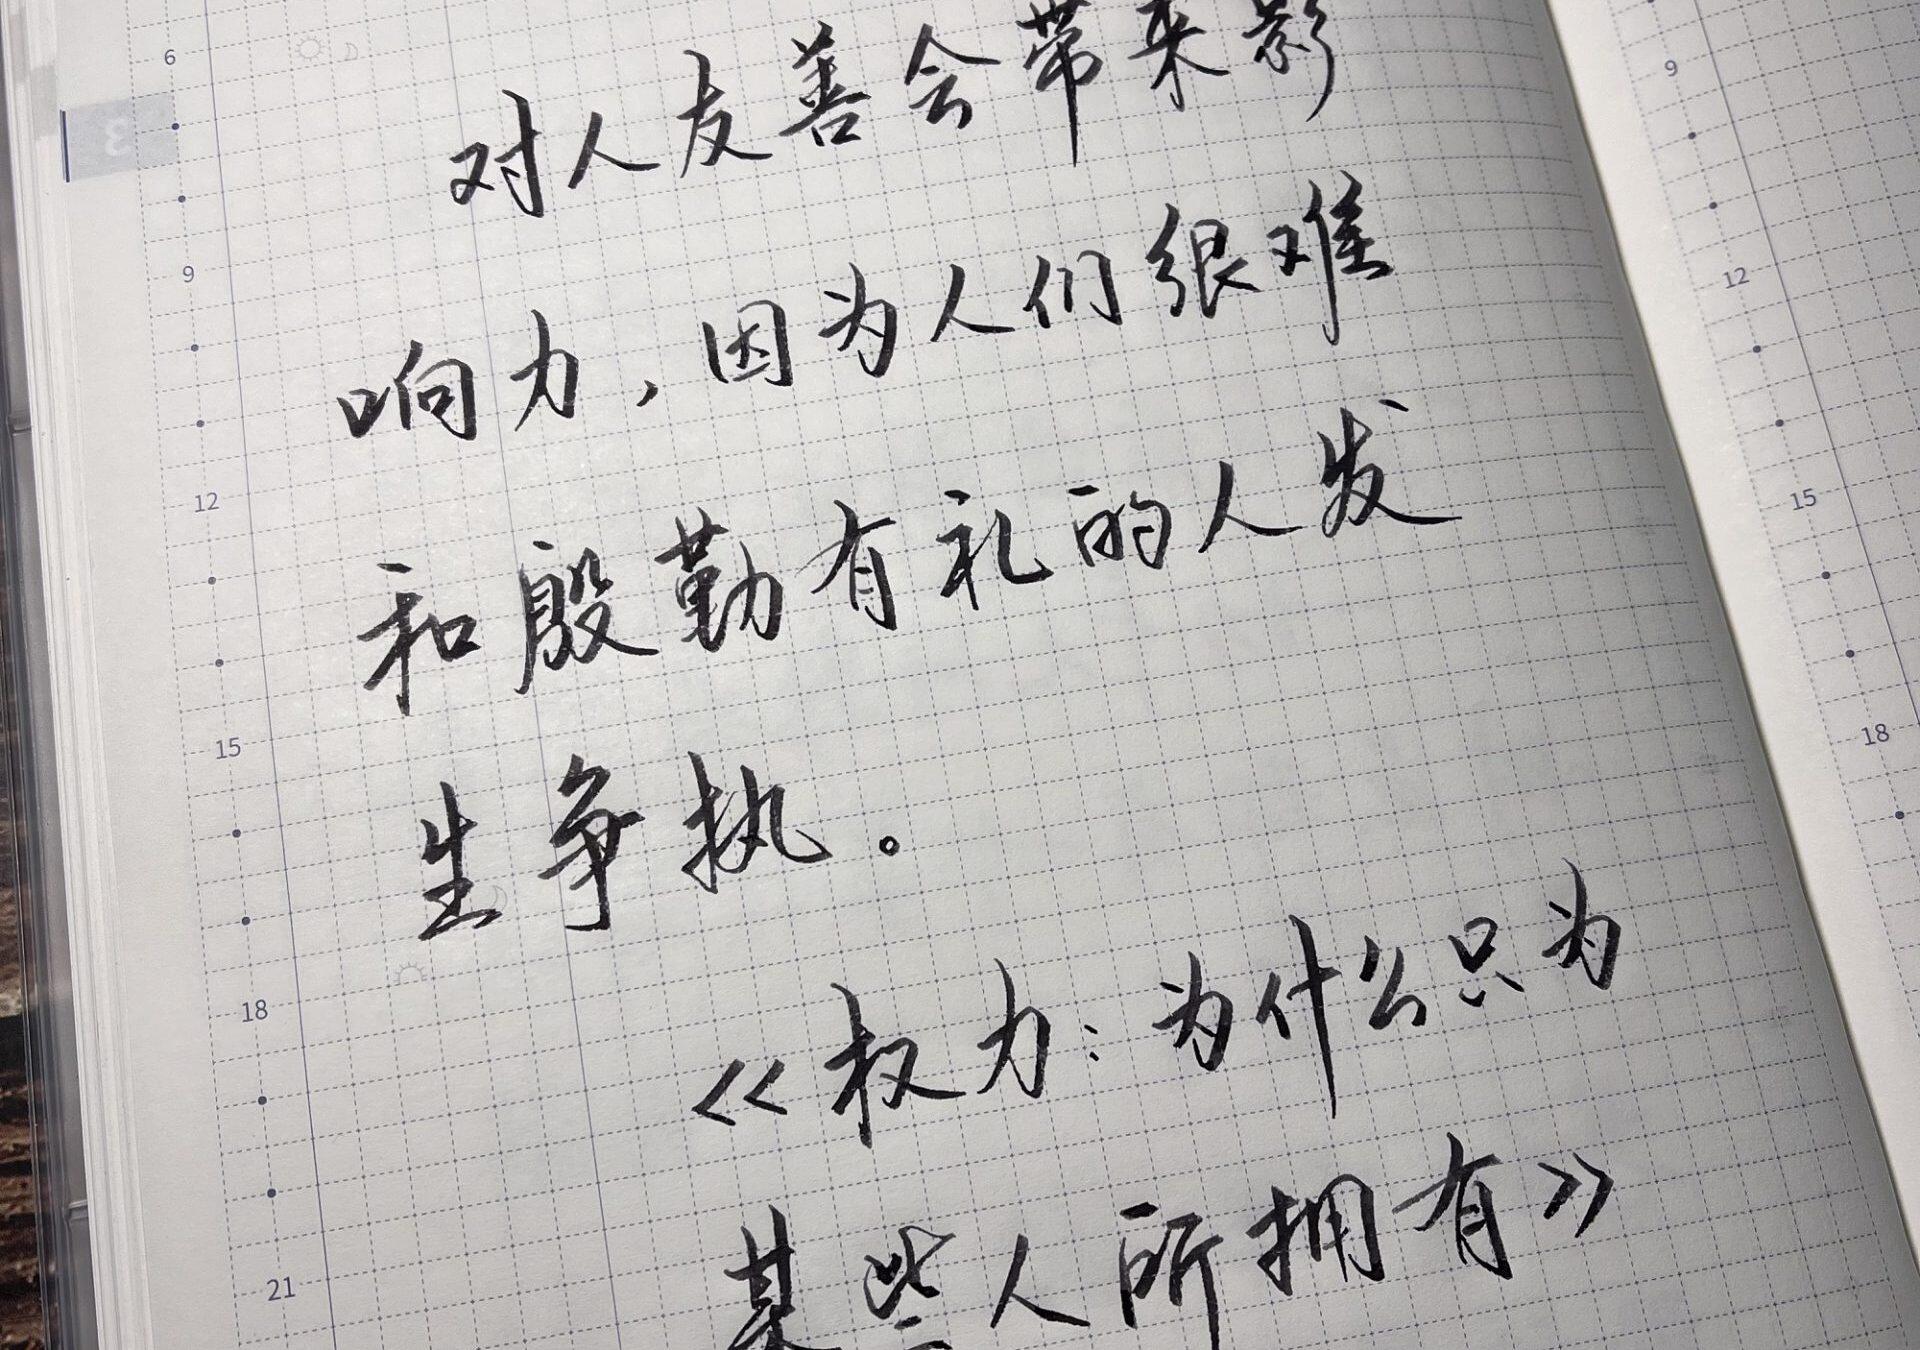 对人友善会带来影
响力，因为人们很难
和殷勤有礼的人发
生争执。
《权力：为什么只为
某些人所拥有》
6
9
12
15
18
21
3
9
12
15
18